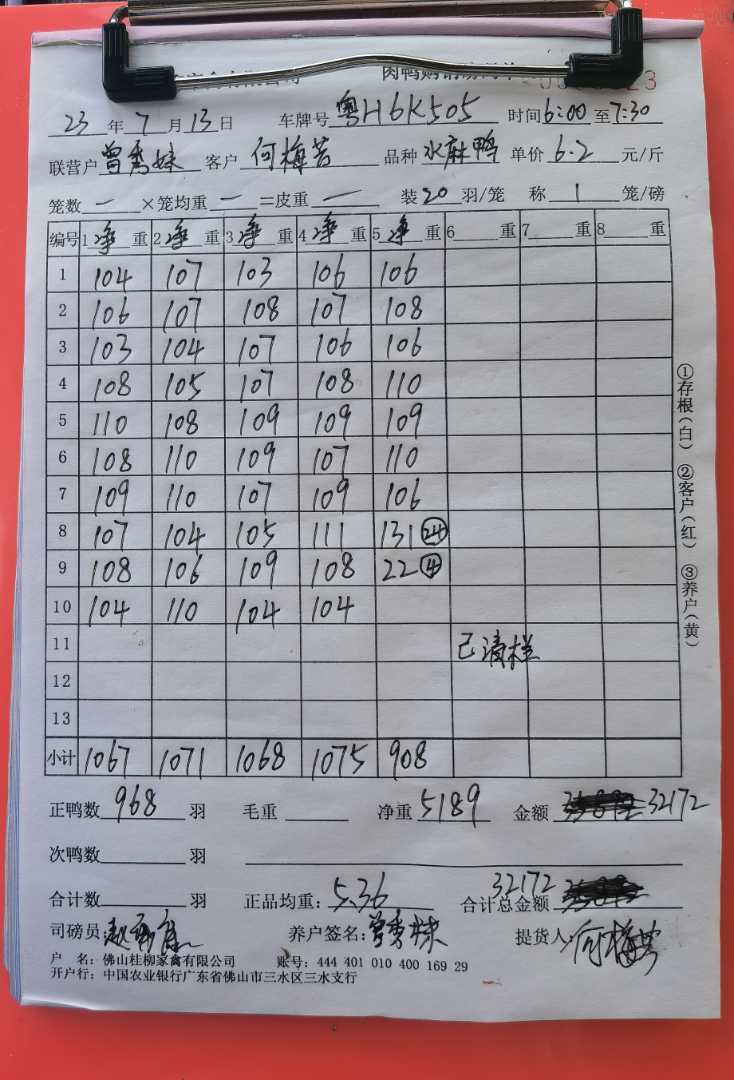 23年7月13日 车牌号 粤H6K505 时间6:00至7:30
联营户 曾秀妹 客户 何梅芳 品种 水麻鸭 单价 6.2 元/斤
笼数 — ×笼均重 — =皮重 — 装20羽/笼 称 1 笼/磅
编号 1净重 2净重 3净重 4净重 5净重 6 重 7 重 8 重
1 104 107 103 106 106
2 106 107 108 107 108
3 103 104 107 106 106
4 108 105 107 108 110
5 110 108 109 109 109
6 108 110 109 107 110
7 109 110 107 109 106
8 107 104 105 111 131 24
9 108 106 109 108 22 4
10 104 110 104 104
11 已清栏
12
13
小计 1067 1071 1068 1075 908
①存根(白) ②客户(红) ③养户(黄)
正鸭数 968 羽 毛重 净重 5189 金额 32172
次鸭数 羽
合计数 羽 正品均重: 5.36 合计总金额 32172
司磅员 养户签名: 曾秀妹 提货人: 何梅芳
户 名: 佛山桂柳家禽有限公司 账号: 444 401 010 400 169 29
开户行: 中国农业银行广东省佛山市三水区三水支行